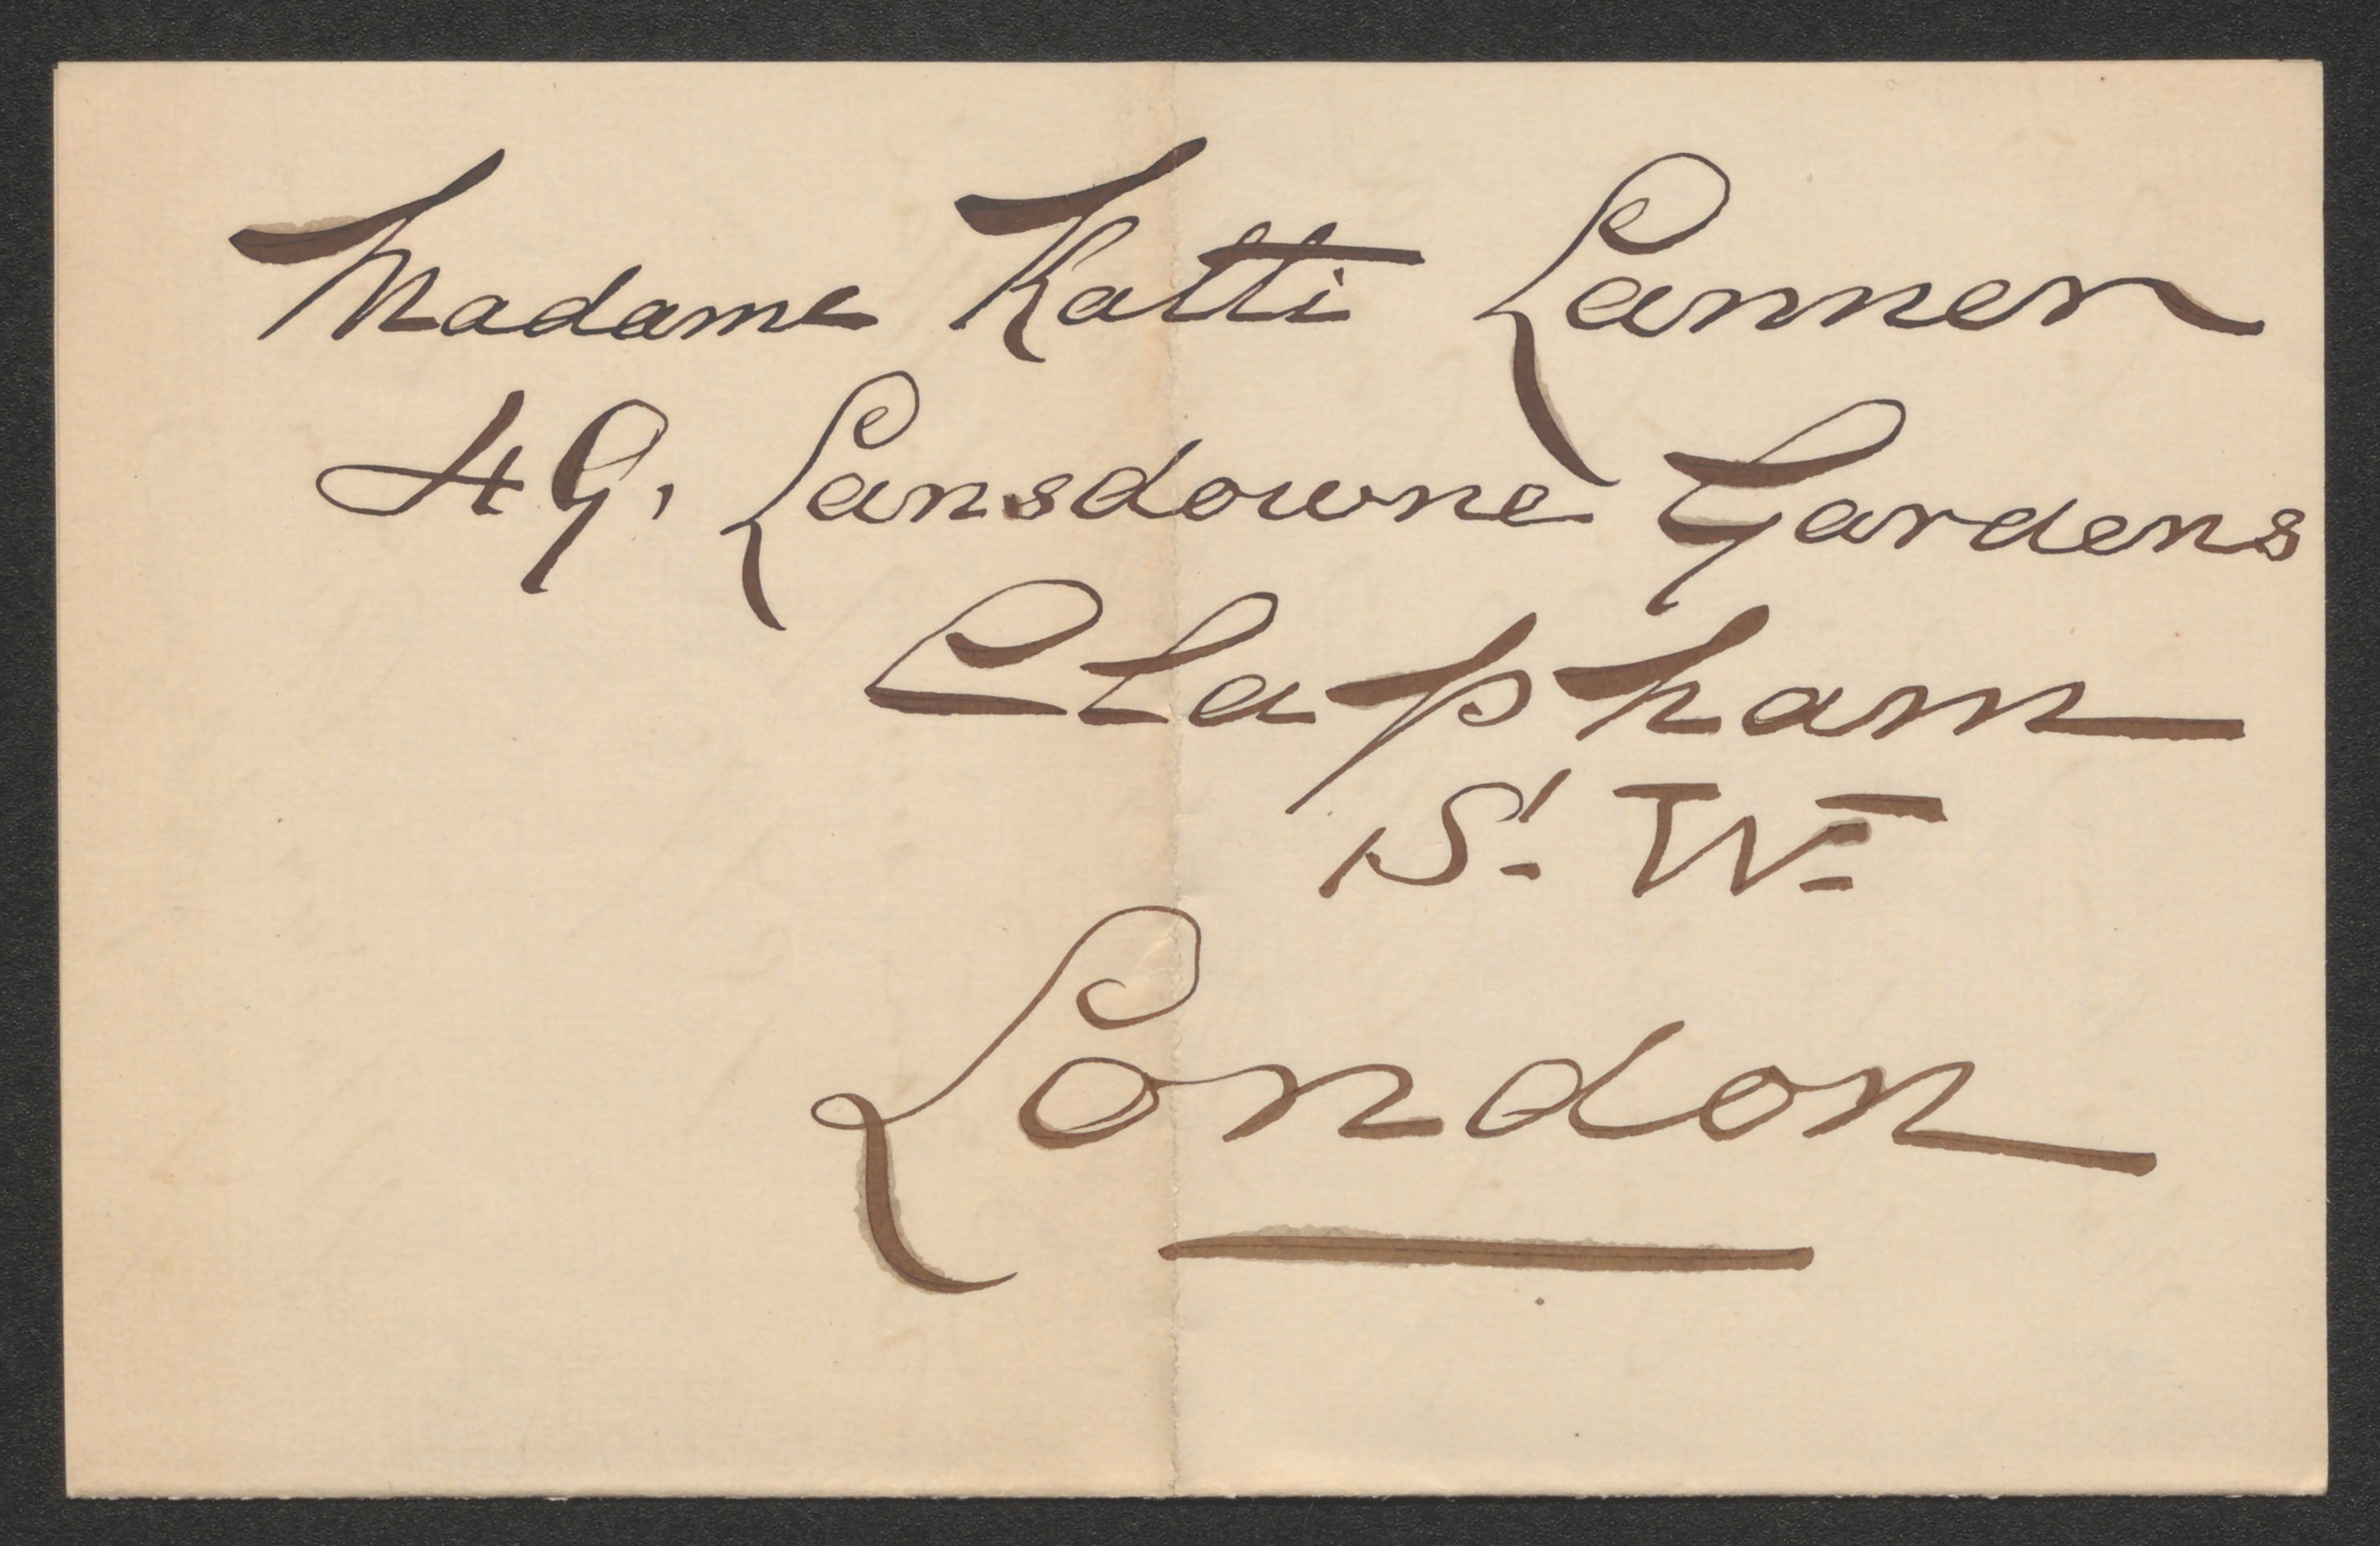 Madame Katti Lanner
49, Lansdowne Gardens
Clapham
S. W.
London